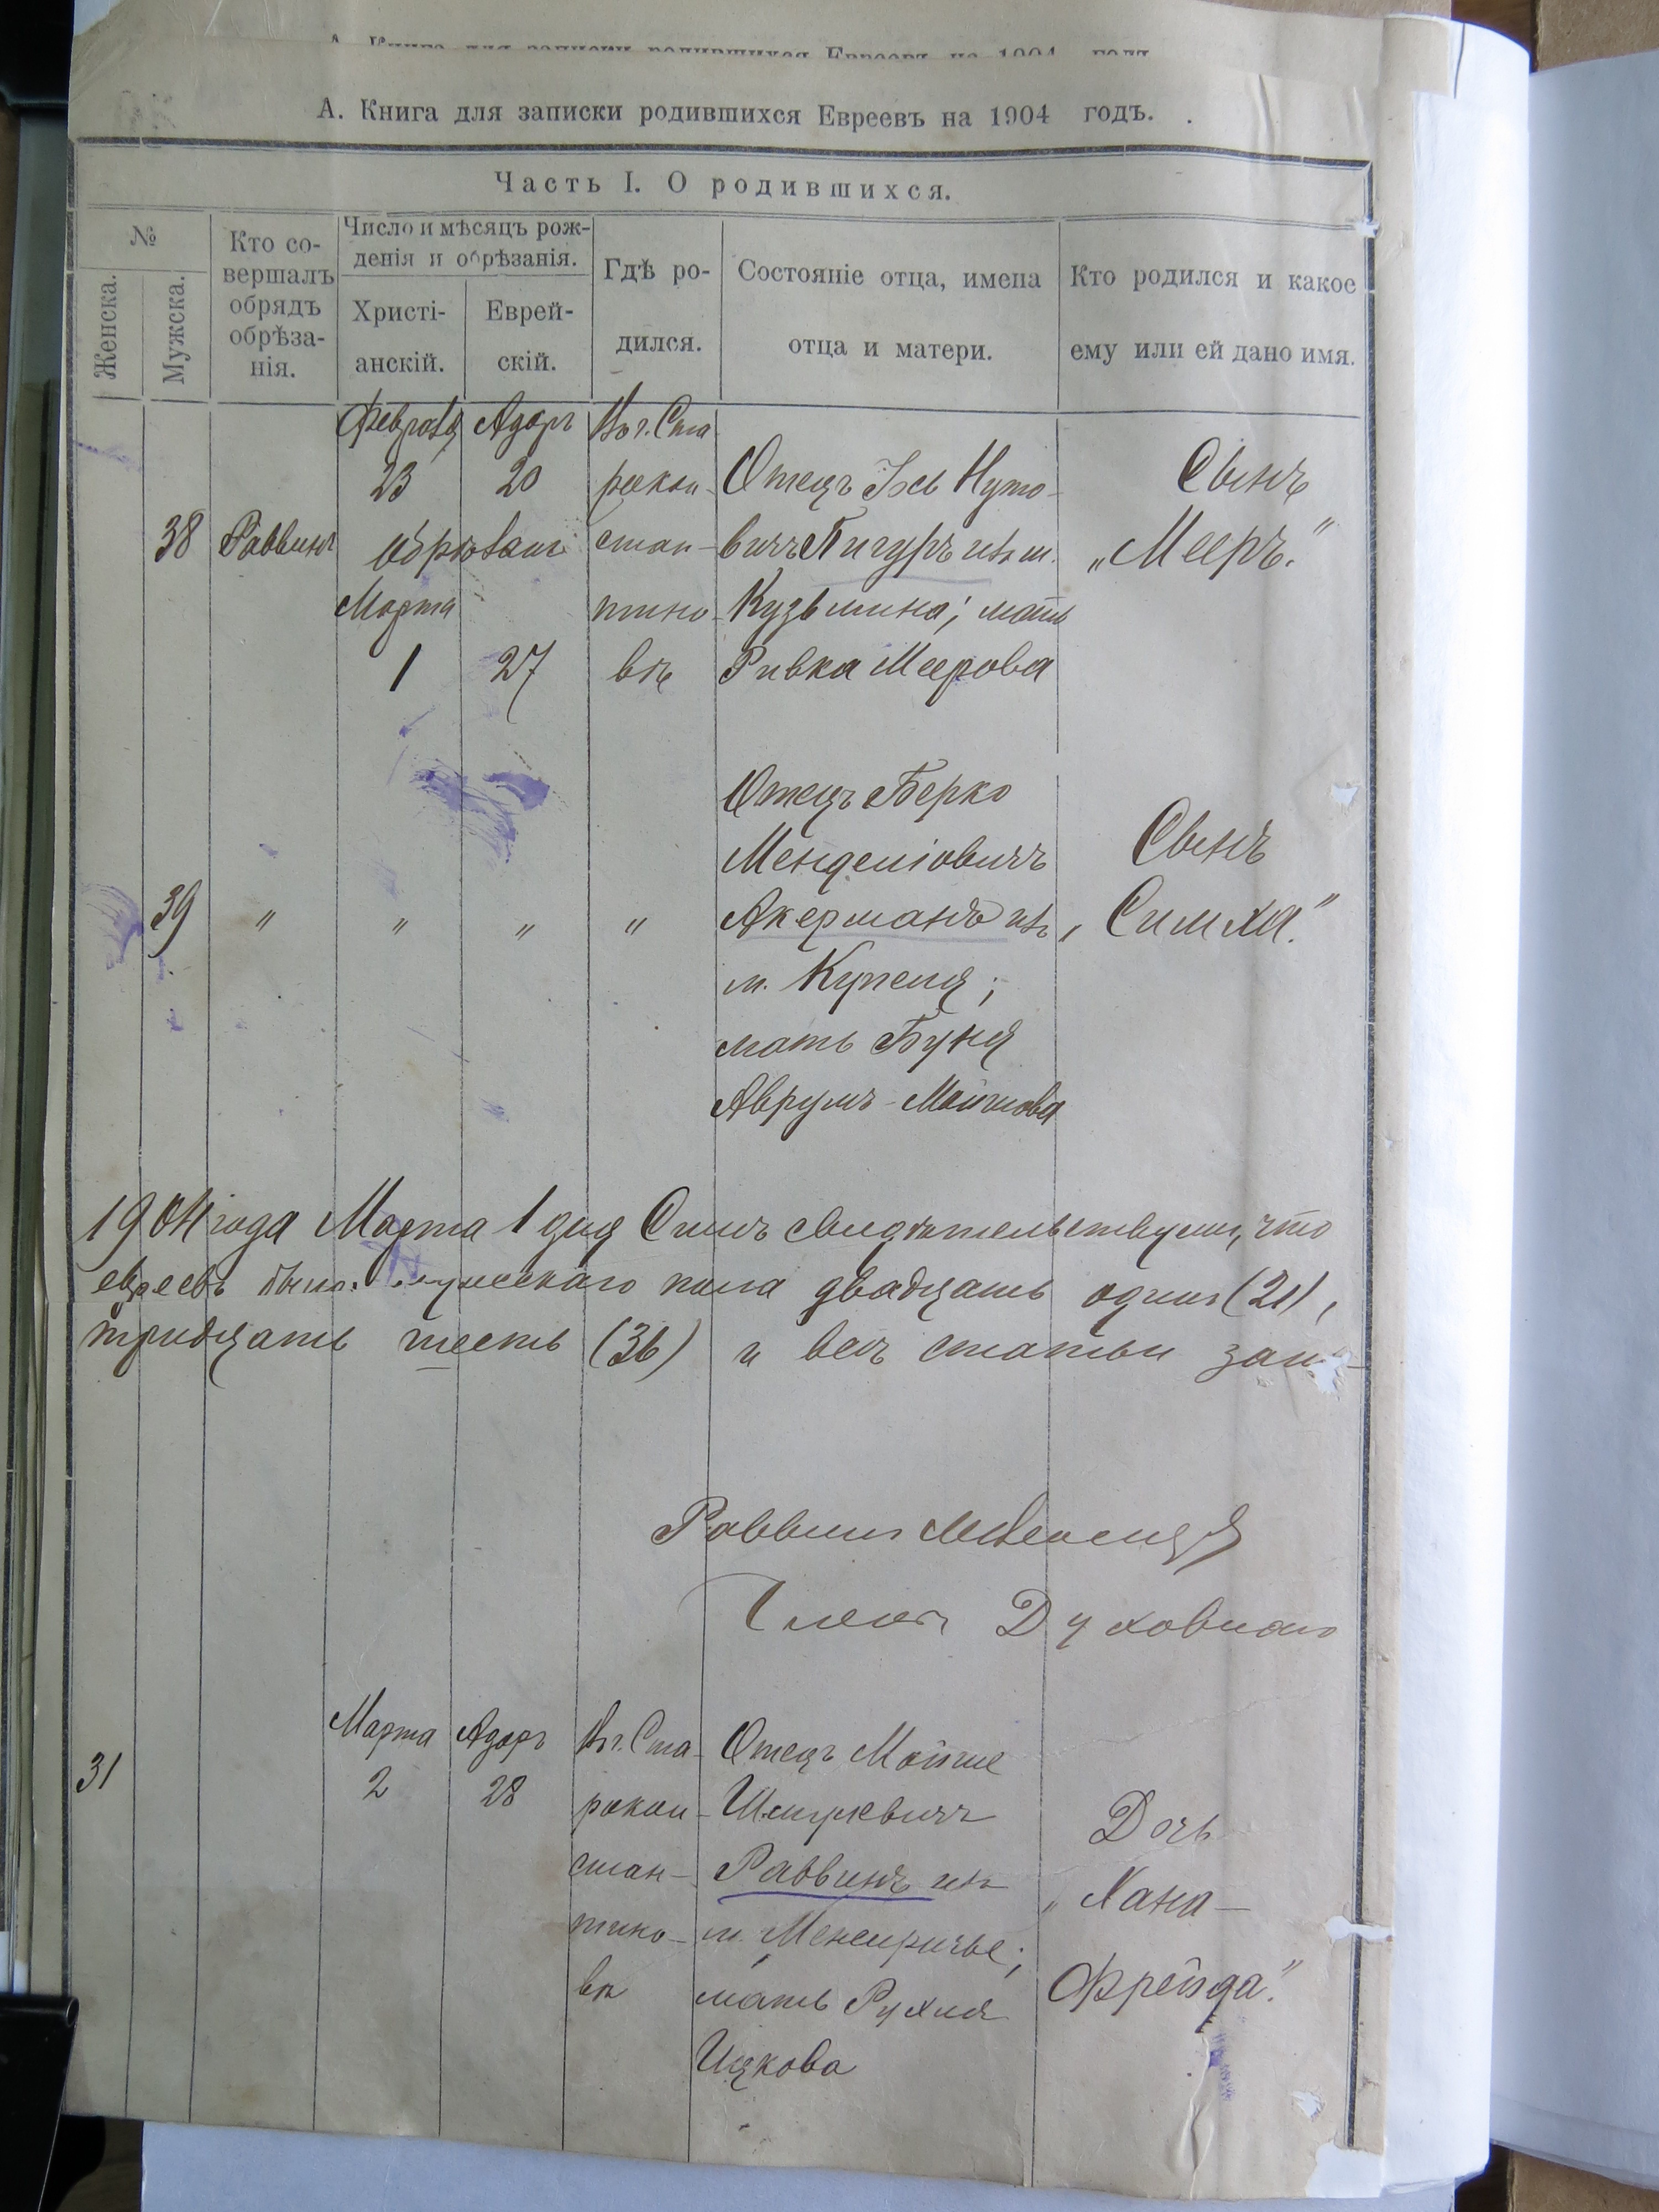 А. Книга для записки родившихся Евреевъ на 1904 годъ.
А. Книга для записки родившихся Евреевъ на 1904 годъ.
Часть I. О родившихся.
№
Женска.
Мужска.
Кто со-
вершалъ
обрядъ
обрѣза-
нія.
Число и мѣсяцъ рож-
денія и обрѣзанія.
Христі-
анскій.
Еврей-
скій.
Гдѣ ро-
дился.
Состояніе отца, имена
отца и матери.
Кто родился и какое
ему или ей дано имя.
38
Раввинъ
Февраля
23
обрѣзанъ
Марта
1
Адаръ
20
27
Въ г. Ста
рокон-
стан-
тино-
вѣ
Отецъ Іось Нуто-
вичъ Пигуръ изъ м.
Кузьмина; мать
Ривка Меерова
Сынъ
„Мееръ."
39
"
"
"
"
Отецъ Берко
Менделіовичъ
Акерманъ изъ
м. Купеля;
мать Буня
Аврумъ-Мошкова
Сынъ
„Симха."
1904 года Марта 1 дня Симъ свидѣтельствуемъ, что
евреевъ было мужескаго пола двадцать одинъ (21),
тридцать шесть (36) и всѣ статьи запи-
Раввинъ
Членъ Духовнаго
31
Марта
2
Адаръ
28
Въ г. Ста-
рокон-
стан-
тино-
вѣ
Отецъ Мойше
Шмулевичъ
Раввинъ изъ
м. Межиричье;
мать Рухля
Ицкова
Дочь
„Хана-
Фрейда."